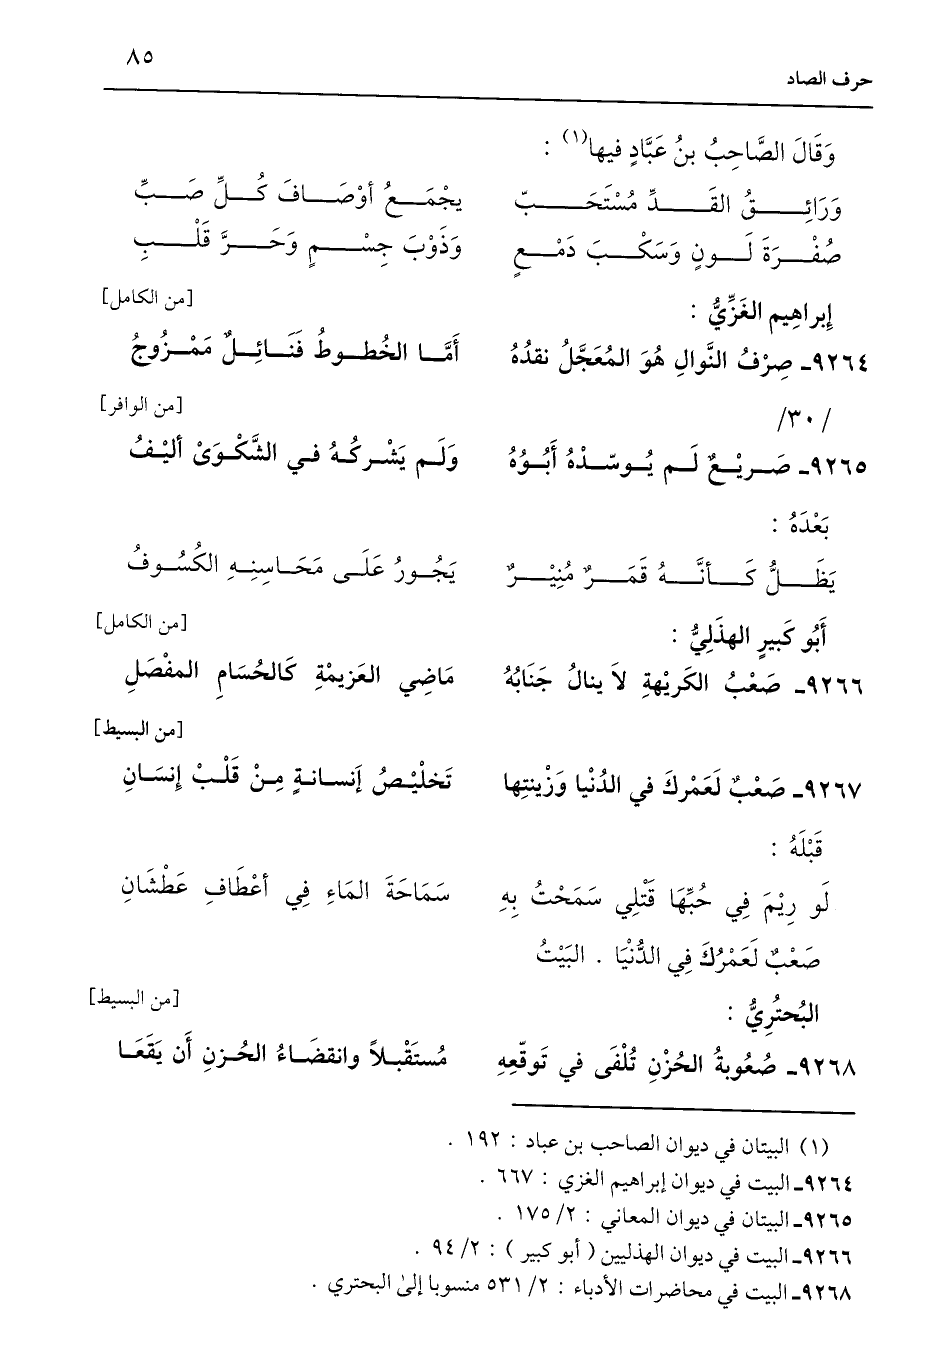 ٨٥
حرف الصاد
وَقَالَ الصَّاحِبُ بنُ عَبَّادٍ فيها(١) :
وَرَائِــقُ القَــدِّ مُسْتَحَــبّ يجْمَــعُ أوْصَــافَ كُــلِّ صَــبِّ
صُفْــرَةَ لَــونٍ وَسَكْــبَ دَمْــعٍ وَذَوْبَ جِسْــمٍ وَحَــرَّ قَلْــبِ
إبراهِيم الغَزِّيُّ : [من الكامل]
٩٢٦٤ـ صِرْفُ النَّوالِ هُوَ المُعَجَّلُ نقدُهُ أمَّــا الخُطــوطُ فَنَائِــلٌ مَمْــزُوجُ
/٣٠/ [من الوافر]
٩٢٦٥ـ صَــرِيْــعٌ لَــم يُــوسّــدْهُ أَبُــوْهُ وَلَــم يَشْــركْــهُ فــي الشَّكْــوَىْ أليْــفُ
بَعْدَهُ :
يَظَــلُّ كَــأنَّــهُ قَمَــرٌ مُنِيْــرٌ يَجُــورُ عَلَــى مَحَــاسِنِــهِ الكُسُــوفُ
أَبُو كَبيرٍ الهذَلِيُّ : [من الكامل]
٩٢٦٦ـ صَعْبُ الكَريْهةِ لاَ ينالُ جَنَابُهُ مَاضِي العَزيمْةِ كَالحُسَامِ المفْصَلِ
[من البسيط]
٩٢٦٧ـ صَعْبٌ لَعَمْركَ في الدُنْيا وَزْينتِها تَخلْيْـصُ إنسـانـةٍ مِـنْ قَلْـبْ إنْسَـانِ
قَبْلَهُ :
لَو رِيْمَ فِي حُبِّهَا قَتْلِي سَمَحْتُ بِهِ سَمَاحَةَ المَاءِ فِي أعْطَافِ عَطْشَانِ
صَعْبٌ لَعَمْرُكَ فِي الدُّنْيَا . البَيْتُ
البُحتُرِيُّ : [من البسيط]
٩٢٦٨ـ صُعُوبةُ الحُزْنِ تُلْفَى في تَوقّعِهِ مُستَقْبـلاً وانقضَـاءُ الحُـزنِ أَن يَقَعَـا
(١) البيتان في ديوان الصاحب بن عباد : ١٩٢ .
٩٢٦٤ـ البيت في ديوان إبراهيم الغزي : ٦٦٧ .
٩٢٦٥ـ البيتان في ديوان المعاني : ٢/ ١٧٥ .
٩٢٦٦ـ البيت في ديوان الهذليين ( أبو كبير ) : ٢/ ٩٤ .
٩٢٦٨ـ البيت في محاضرات الأدباء : ٢/ ٥٣١ منسوبا إلىٰ البحتري .